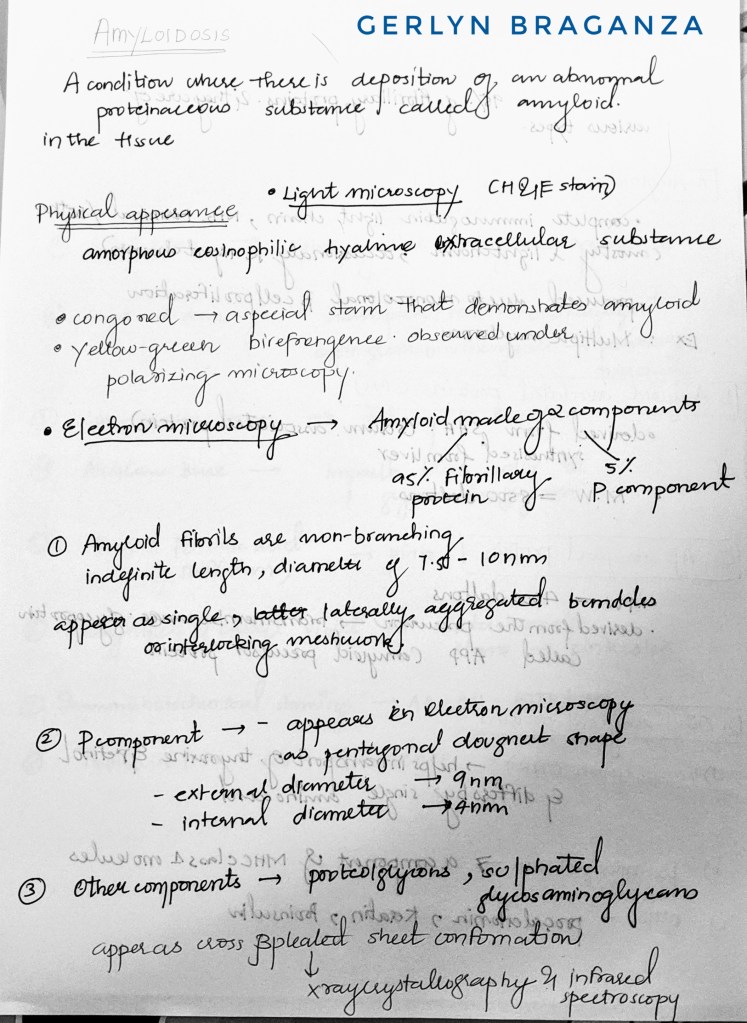 AMYLOIDOSIS
GERLYN BRAGANZA
A condition where there is deposition of an abnormal
proteinaceous substance called amyloid.
in the tissue
• Light microscopy (H & E stain)
Physical apperance
amorphous eosinophilic hyaline extracellular substance
• congo red → a special stain that demonstrates amyloid
• Yellow-green birefrengence observed under
polarizing microscopy.
• Electron microscopy → Amyloid made of 2 components
95% fibrillary 5%
protein P component
① Amyloid fibrils are non-branching
indefinite length, diameter of 7.5 - 10nm
apperar as single, latter laterally aggregated bundles
or interlocking meshwork
② P component → - appears in electron microscopy
as pentagonal doughnut shape
- external diameter → 9nm
- internal diameter → 4nm
③ Other components → proteolgycons, sulphated
glycosaminoglycans
apper as cross β pleated sheet confomation
↓
x ray crystallography & infrared
spectroscopy